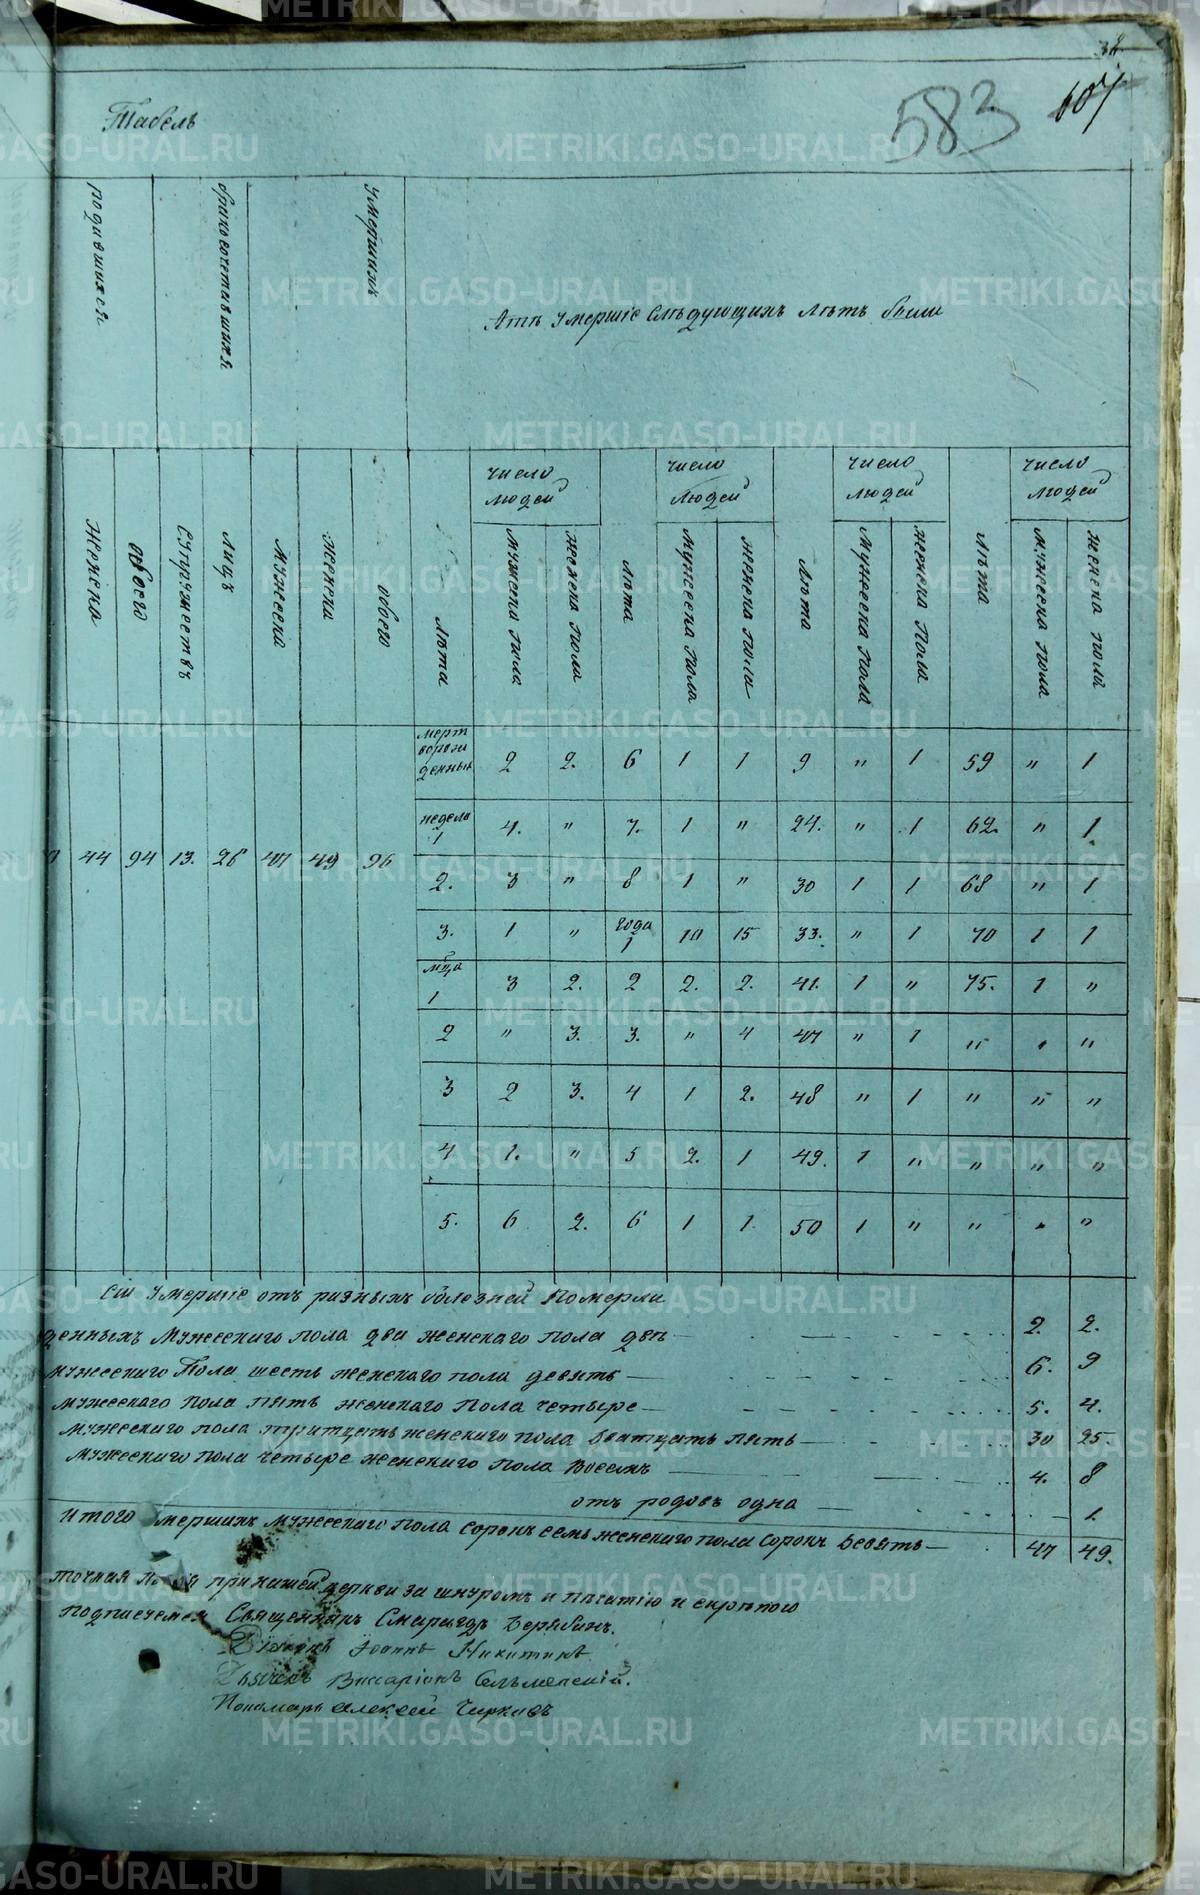 38.
583
607
Табель
родившихся
бракосочетавшихся
умершихъ
Лѣтъ умершіе слѣдующихъ лѣтъ были
женска
обоего
супружествъ
лицъ
мужска
женска
обоего
лѣта
число людей
мужеска пола
женска пола
лѣта
число людей
мужеска пола
женска пола
лѣта
число людей
мужеска пола
женска пола
лѣта
число людей
мужеска пола
женска пола
44 94 13. 26 47 49 96
мертворожденныхъ 2 2. 6 1 1 9 " 1 59 " 1
недели 1 4. " 7. 1 " 24. " 1 62. " 1
2. 3 " 8 1 " 30 1 1 68 " 1
3. 1 " года 1 10 15 33. " 1 70 1 1
мца 1 3 2. 2 2. 2. 41. 1 " 75. 1 "
2 " 3. 3. " 4 47 " 1 " " "
3 2 3. 4 1 2. 48 " 1 " " "
4 1. " 5 2. 1 49. 1 " " " "
5. 6 2. 6 1 1 50 1 " " " "
сіи умершіе отъ разныхъ болезней померли
денныхъ мужескаго пола два женскаго пола двѣ 2. 2.
мужескаго пола шесть женскаго пола девять 6. 9
мужескаго пола пять женскаго пола четыре 5. 4.
мужескаго пола тритцать женскаго пола дватцать пять 30 25.
мужескаго пола четыре женскаго пола восемь 4. 8
отъ родовъ одна 1.
итого умершихъ мужескаго пола сорокъ семь женскаго пола сорокъ девять 47 49.
точная при нашей церкви за шнуромъ и печатію и скрѣпою
подписуемся Священникъ Смарагдъ
Діаконъ Іоаннъ Никитинъ
Дьячекъ Виссаріонъ Сельменскій.
Пономарь Алексей Чирковъ
METRIKI.GASO-URAL.RU